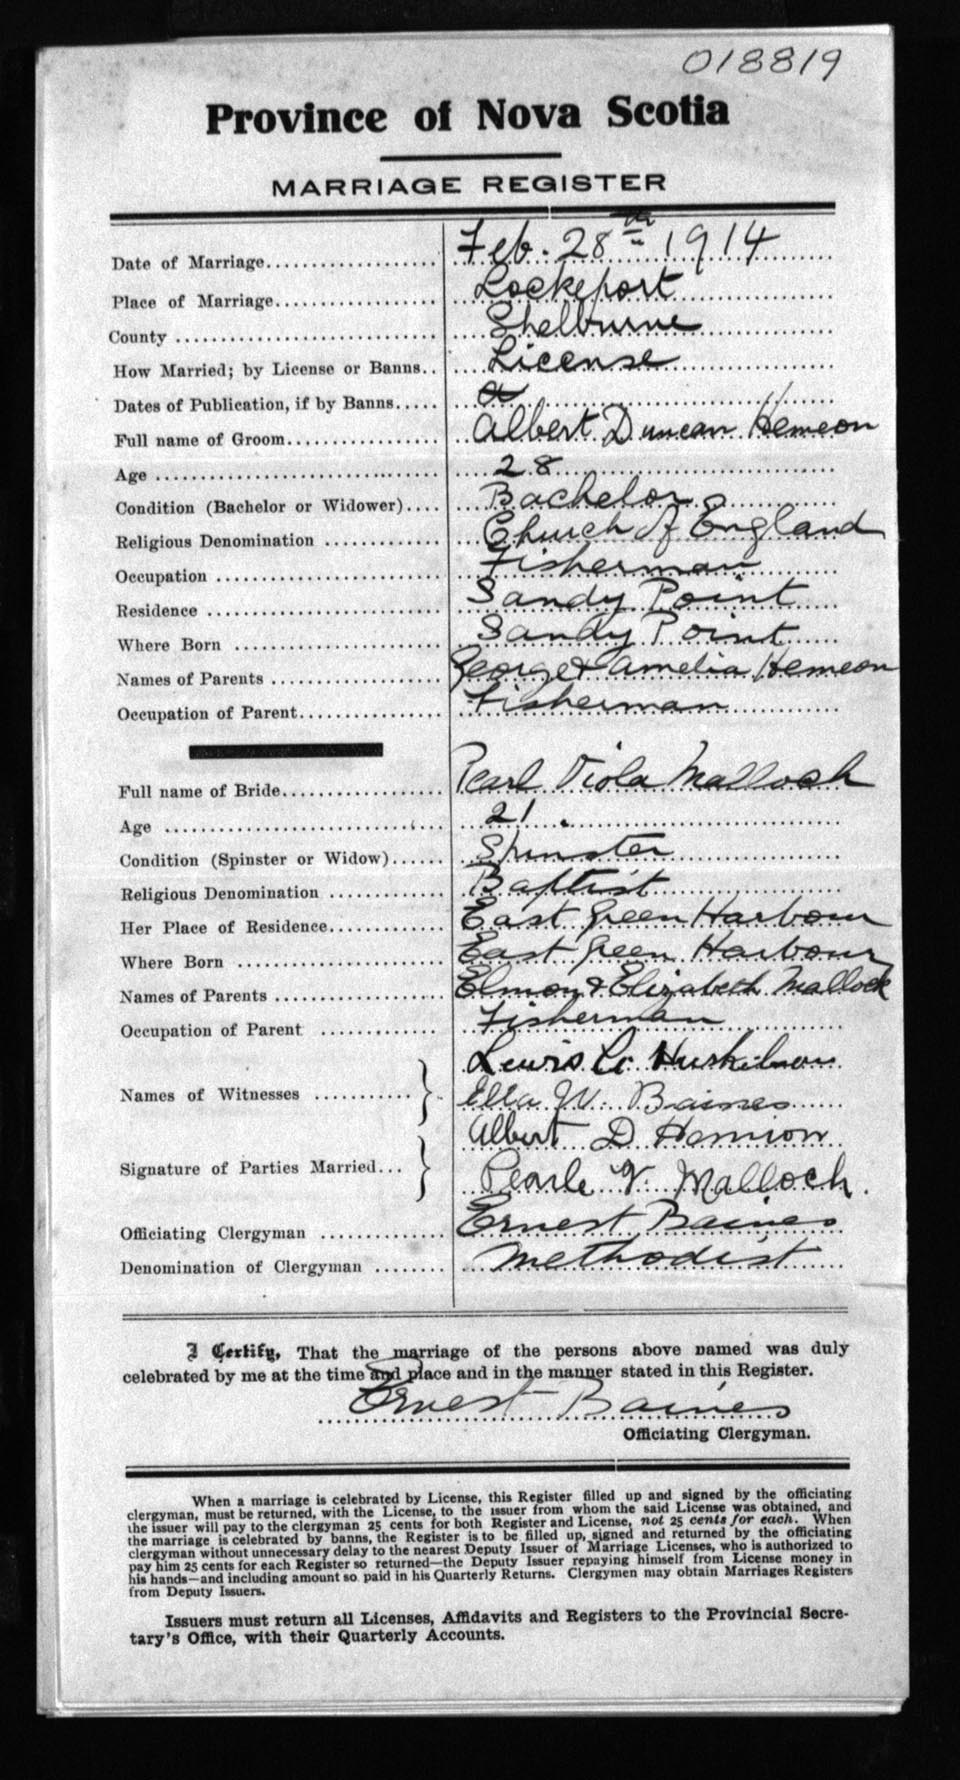 018819
Province of Nova Scotia
MARRIAGE REGISTER
Date of Marriage Feb. 28th 1914
Place of Marriage Lockeport
County Shelburne
How Married; by License or Banns License
Dates of Publication, if by Banns
Full name of Groom Albert Duncan Hemeon
Age 28
Condition (Bachelor or Widower) Bachelor
Religious Denomination Church of England
Occupation Fisherman
Residence Sandy Point
Where Born Sandy Point
Names of Parents George & Amelia Hemeon
Occupation of Parent Fisherman
Full name of Bride Pearl Viola Malloch
Age 21
Condition (Spinster or Widow) Spinster
Religious Denomination Baptist
Her Place of Residence East Green Harbour
Where Born East Green Harbour
Names of Parents & Elizabeth Mallock
Occupation of Parent Fisherman
Lewis
Names of Witnesses Ella W. Baines
Albert D
Signature of Parties Married Pearle V. Malloch.
Officiating Clergyman Ernest Baines
Denomination of Clergyman Methodist
I Certify, That the marriage of the persons above named was duly
celebrated by me at the time and place and in the manner stated in this Register.
Ernest Baines
Officiating Clergyman.
When a marriage is celebrated by License, this Register filled up and signed by the officiating
clergyman, must be returned, with the License, to the issuer from whom the said License was obtained, and
the issuer will pay to the clergyman 25 cents for both Register and License, not 25 cents for each. When
the marriage is celebrated by banns, the Register is to be filled up, signed and returned by the officiating
clergyman without unnecessary delay to the nearest Deputy Issuer of Marriage Licenses, who is authorized to
pay him 25 cents for each Register so returned—the Deputy Issuer repaying himself from License money in
his hands—and including amount so paid in his Quarterly Returns. Clergymen may obtain Marriages Registers
from Deputy Issuers.
Issuers must return all Licenses, Affidavits and Registers to the Provincial Secre-
tary's Office, with their Quarterly Accounts.